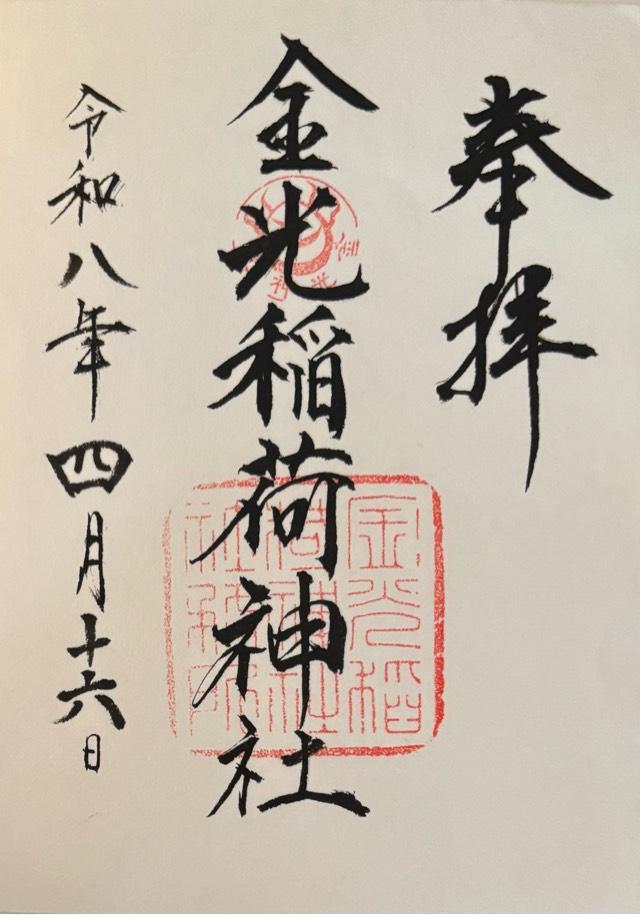 奉拝
金光稲荷神社
令和八年四月十六日
金光稲
荷神社
社務所